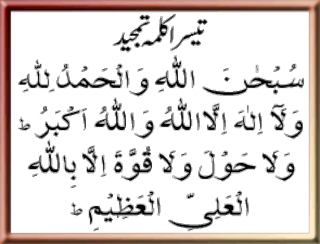 تیسرا کلمہ تمجید
سُبْحٰنَ اللّٰهِ وَالْحَمْدُ لِلّٰهِ
وَلَآ اِلٰهَ اِلَّا اللّٰهُ وَاللّٰهُ اَكْبَرُ ط
وَلَا حَوْلَ وَلَا قُوَّةَ اِلَّا بِاللّٰهِ
الْعَلِیِّ الْعَظِیْمِ ط